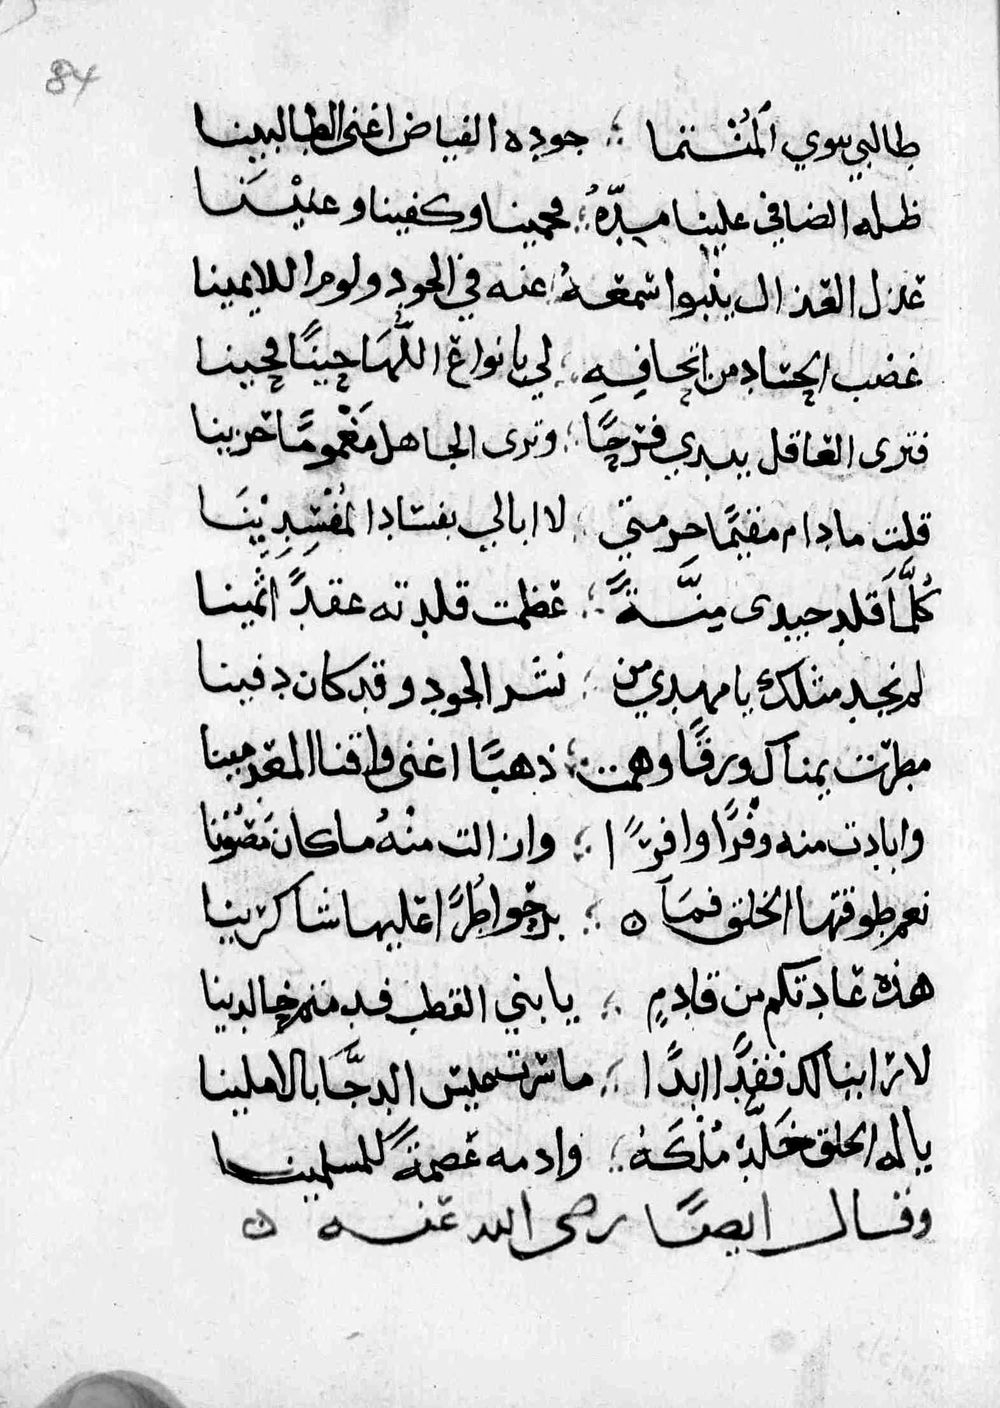 84
طالبي سوي المنتما ؛ جوده الفياض اغنى الطالبينا
ظله الضافي علينا مدّهُ ؛ فحمينا وكفينا وعنينا
عذل العذال ينبوا سمعهُ ؛ عنه في الجود ولوم اللايمينا
غضب الحساد من اتحافِهِ ؛ لي بانواع اللُّهَا حِينًا فحينا
فترى العاقل يبدي فرحًا ؛ وترى الجاهل مَغْمومًا حزينا
قلت مادام مقيمًا حرمتي ؛ لا ابالي بفساد المُفْسِدِيْنَا
كُلَّمَا قلد جيدى مِنَّةً ؛ عظمت قلدته عقدً اثمينا
لم نجد مثلك يا مهدي من ؛ نشر الجود وقد كان دفينا
مطرت يمناك ورقًا وهمت ؛ ذهبًا اغنى واقنا المعدمينا
وابادت منه وفْرًا وافرًا ؛ وازالت منْهُ ما كان مَصُوْنا
نعم طوقتها الخلق فمَا ؛ برحوا طُرًّا عليها شاكرينا
هذه عادتكم من قادمٍ ؛ يا بني القطب فدمتم خالدينا
لا ترا بينا لكم فقدًا ابدًا ؛ ما سرت عيس الرجَّا بالاملينا
يا اله الخلق خَلِّدْ مُلْكَهُ ؛ وادمه عصمةً للمسلمينا
وقال ايضًا رضى الله عنه